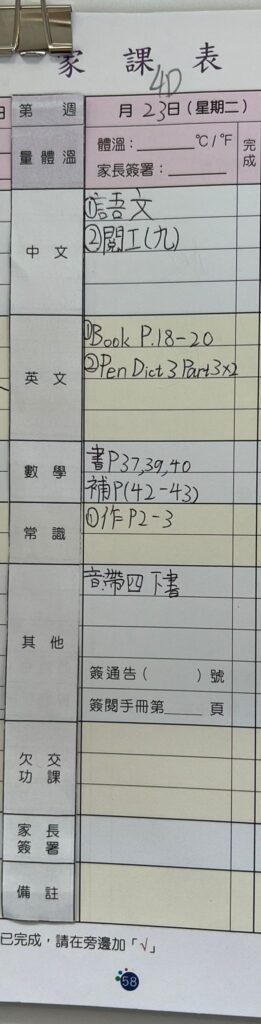 家 課 表
4D
日
第 週
月 23日 (星期二)
量體溫
體溫：______°C / °F
家長簽署：______
完成
中 文
①語文
②閱工(九)
英 文
①Book P.18-20
②Pen Dict 3 Part 3×2
數 學
書P37,39,40
補P(42-43)
常 識
①作P2-3
其 他
音:帶四下書
簽通告 ( ) 號
簽閱手冊第_____頁
欠 交
功 課
家 長
簽 署
備 註
已完成，請在旁邊加「√」
58